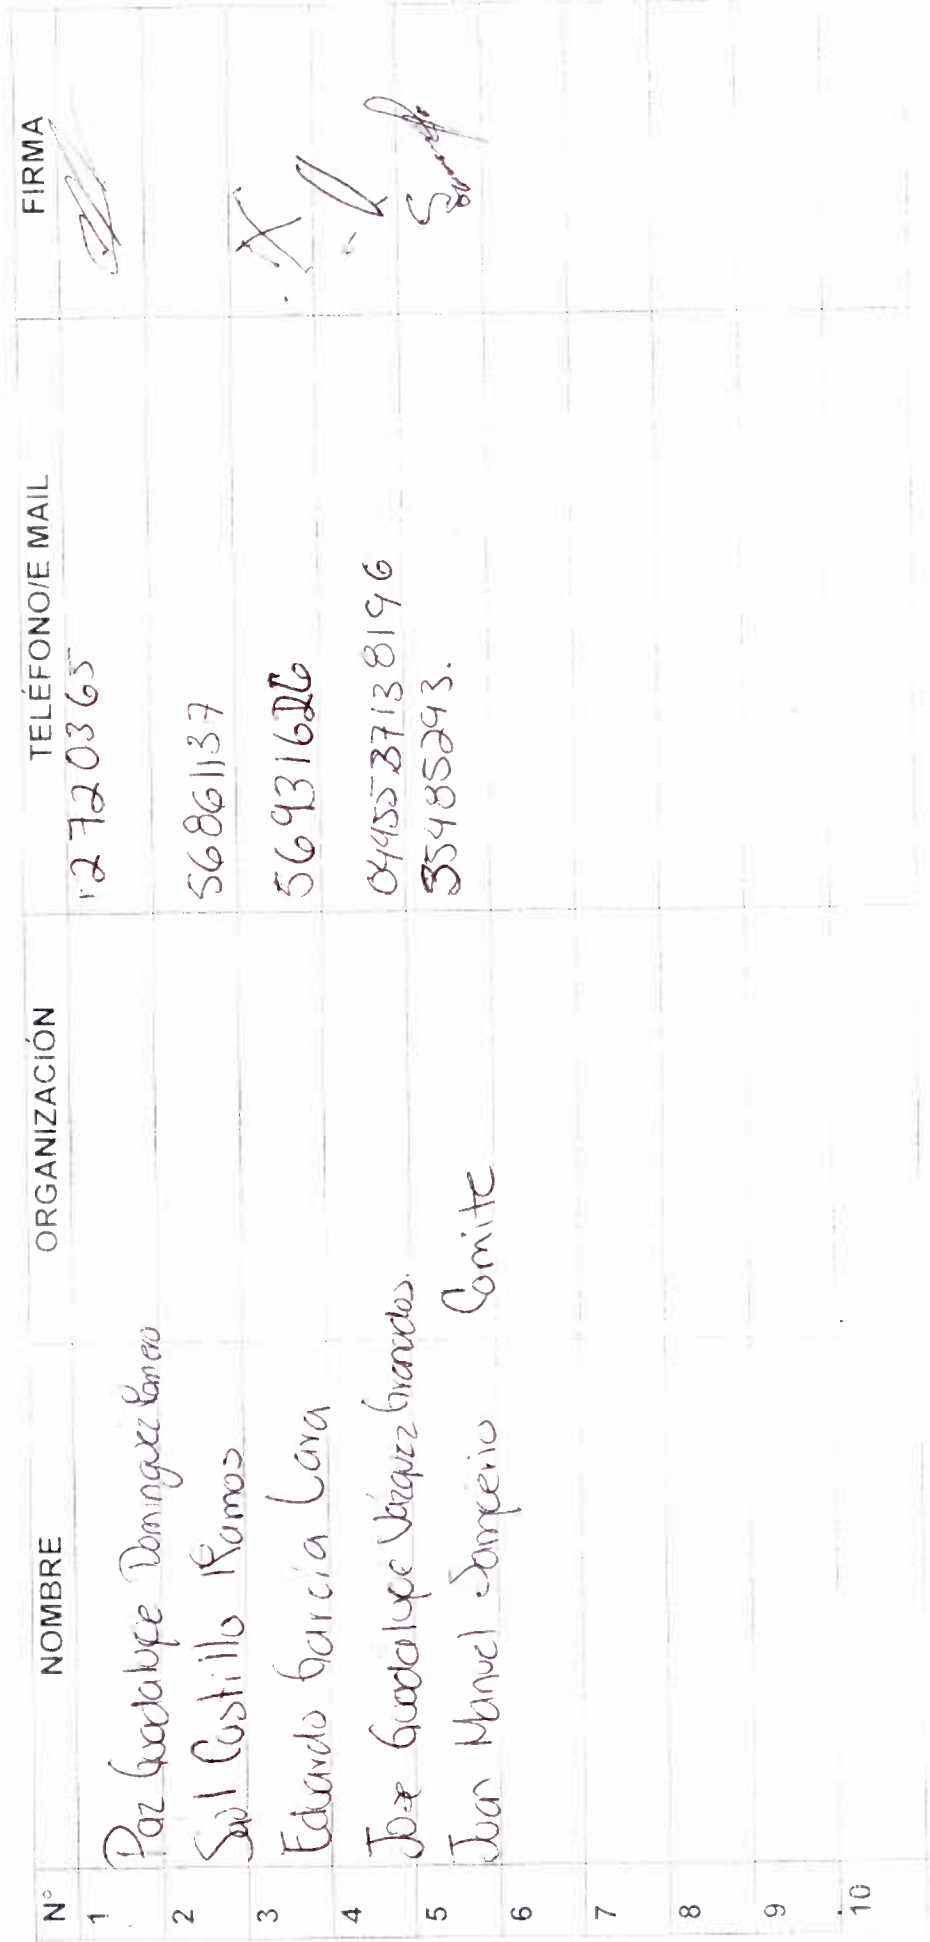 N° NOMBRE ORGANIZACIÓN TELÉFONO/E MAIL FIRMA
1 Paz Guadalupe Dominguez Romero 2720365
2 Saul Castillo Ramos 56861137
3 Eduardo García Lara
4 Jose Guadalupe Vázquez Granados. 0445537138196
5 Juan Manuel Samperio Comite 35485293.
6
7
8
9
10